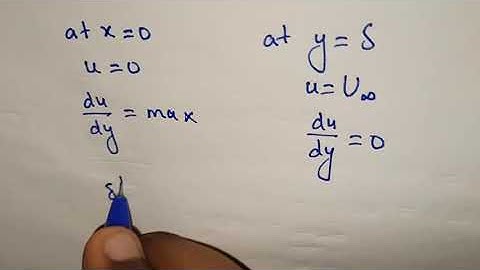 at x=0
u=0
du/dy = max
at y=δ
u=U∞
du/dy = 0